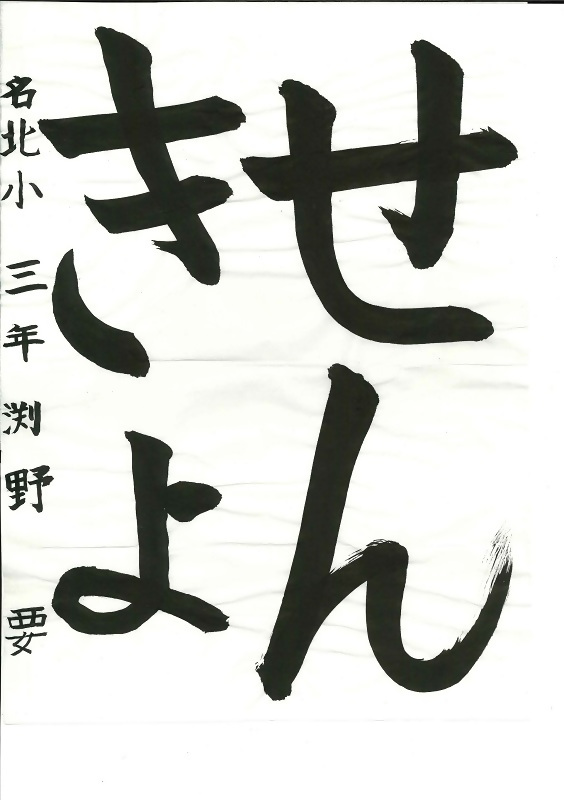 せん
きよ
名北小 三年 渕野 要